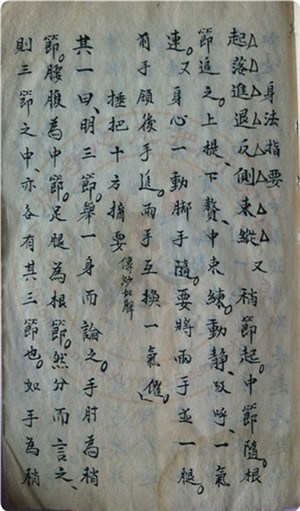 身法指要
起落進退反側束縱 又 稍節起。中節隨。根
節進之。上提、下贅、中束練。動靜、呼、一氣
連。又身心一動脚手隨。要將兩手並一腿。
前手領後手進。兩手互換一氣催。
捶把十方摘要
其一曰、明三節。舉一身而論之。手肘為稍
節。腰腹為中節。足腿為根節。然分而言之、
則三節之中、亦各有其三節也。如手為稍